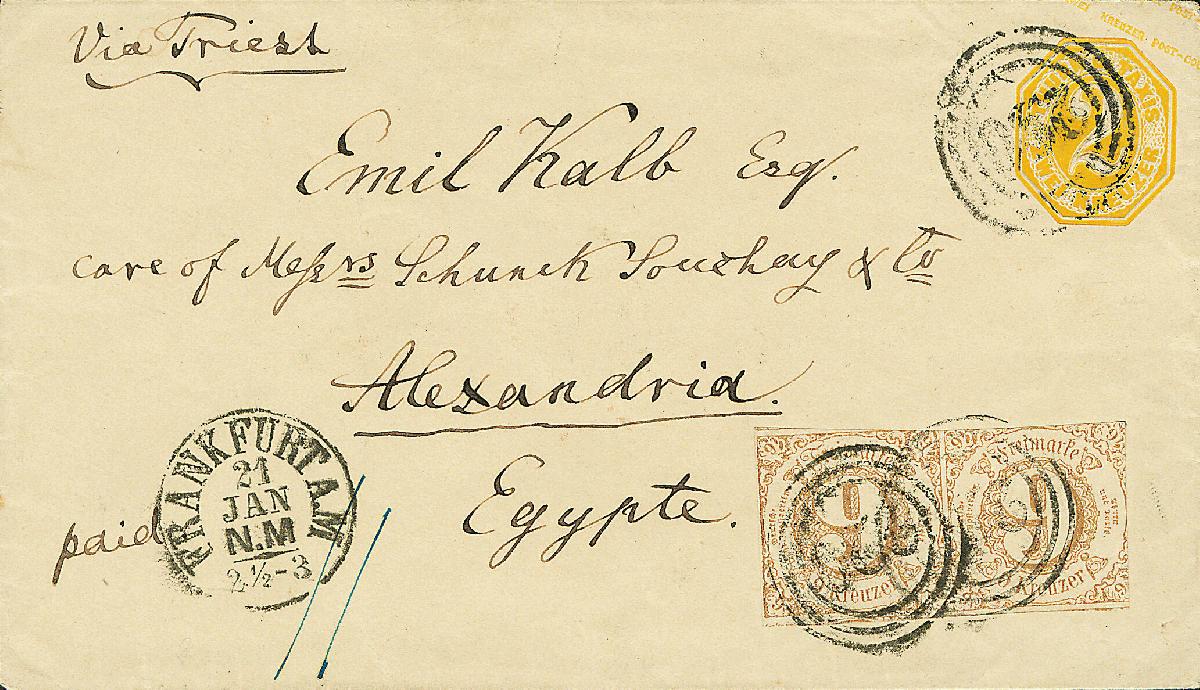 Via Triest
ZWEI KREUZER. POST-COU
TAXIS
ZWEI KREUZER
2
Emil Kalb Esq.
care of Messrs Schunck Souchay & Co
Alexandria.
Egypte.
paid
FRANKFURT A.M
21
JAN
N.M
2½-3
9
Kreuzer
Freimarke
9
Kreuzer